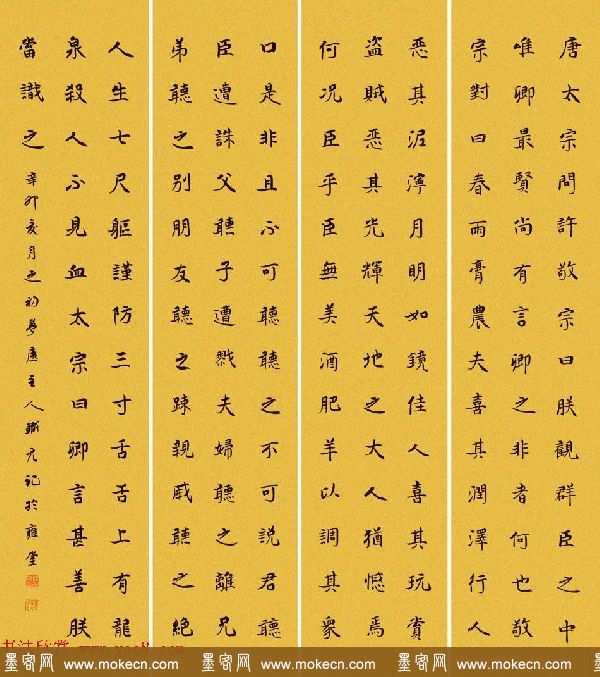 唐太宗問許敬宗曰朕觀群臣之中
唯卿最賢尚有言卿之非者何也敬
宗對曰春雨膏農夫喜其潤澤行人
惡其泥濘月明如鏡佳人喜其玩賞
盗賊惡其光輝天地之大人猶憾焉
何况臣乎臣無美酒肥羊以調其衆
口是非且不可聽聽之不可説君聽
臣遭誅父聽子遭戮夫婦聽之離兄
弟聽之别朋友聽之疎親戚聽之絶
人生七尺軀謹防三寸舌舌上有龍
泉殺人不見血太宗曰卿言甚善朕
當識之
辛卯亥月之初夢廬主人元記於堂
墨客网 www.mokecn.com 墨客网 www.mokecn.com 墨客网 www.mokecn.com